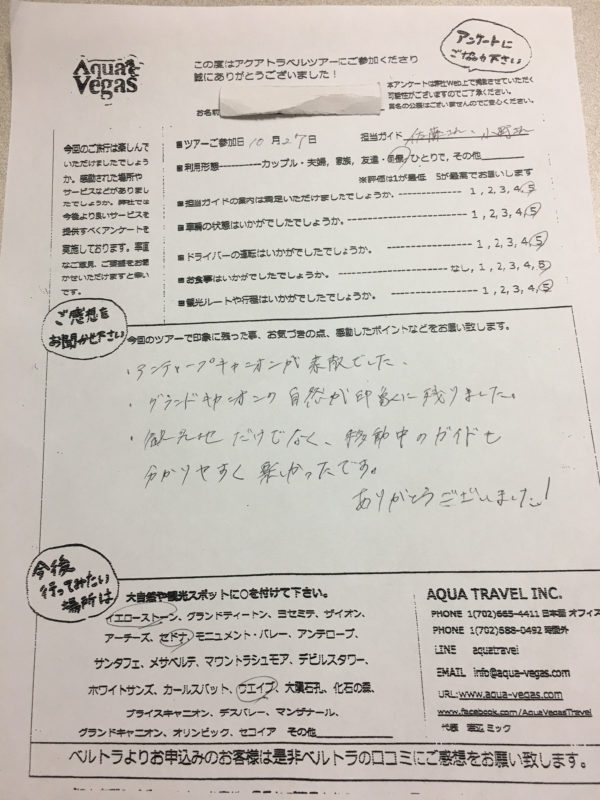 Aqua Vegas
この度はアクアトラベルツアーにご参加くださり
誠にありがとうございました！
アンケートに
ご協力下さい
本アンケートは弊社Web上で掲載させていただく
可能性がございますのでご了承ください。
お名前
今回のご旅行は楽しんで
いただけましたでしょう
か。感動された場所や
サービスなどがありまし
たでしょうか。弊社では
今後より良いサービスを
提供すべくアンケートを
実施しております。率直
なご意見、ご要望をお聞
かせいただけますと幸い
です。
■ツアーご参加日 10月27日 担当ガイド 佐藤さん、小野さん
■利用形態----------カップル・夫婦, 家族, 友達・同僚, ひとりで, その他
※評価は1が最低 5が最高でお願いします
■担当ガイドの案内は満足いただけましたでしょうか。 1, 2, 3, 4, 5
■車輌の状態はいかがでしたでしょうか。 1, 2, 3, 4, 5
■ドライバーの運転はいかがでしたでしょうか。 1, 2, 3, 4, 5
■お食事はいかがでしたでしょうか。 なし, 1, 2, 3, 4, 5
■観光ルートや行程はいかがでしたでしょうか。 1, 2, 3, 4, 5
ご感想を
お聞かせ下さい
今回のツアーで印象に残った事、お気づきの点、感動したポイントなどをお願い致します。
・アンテロープキャニオンが素敵でした。
・グランドキャニオンの自然が印象に残りました。
・観光地だけでなく、移動中のガイドも
分かりやすく楽しかったです。
ありがとうございました!
今後
行ってみたい
場所は
大自然や観光スポットに○を付けて下さい。
イエローストーン、グランドティートン、ヨセミテ、ザイオン、
アーチーズ、セドナ、モニュメント・バレー、アンテロープ、
サンタフェ、メサベルデ、マウントラシュモア、デビルスタワー、
ホワイトサンズ、カールスバット、ウエイブ、大隕石孔、化石の森、
ブライスキャニオン、デスバレー、マンザナール、
グランドキャニオン、オリンピック、セコイア その他
AQUA TRAVEL INC.
PHONE 1(702)665-4411 日本語 オフィス
PHONE 1(702)588-0492 時間外
LINE aquatravel
EMAIL info@aqua-vegas.com
URL:www.aqua-vegas.com
www.facebook.com/AquaVegasTravel
代表 渡辺 ミック
ベルトラよりお申込みのお客様は是非ベルトラの口コミにご感想をお願い致します。